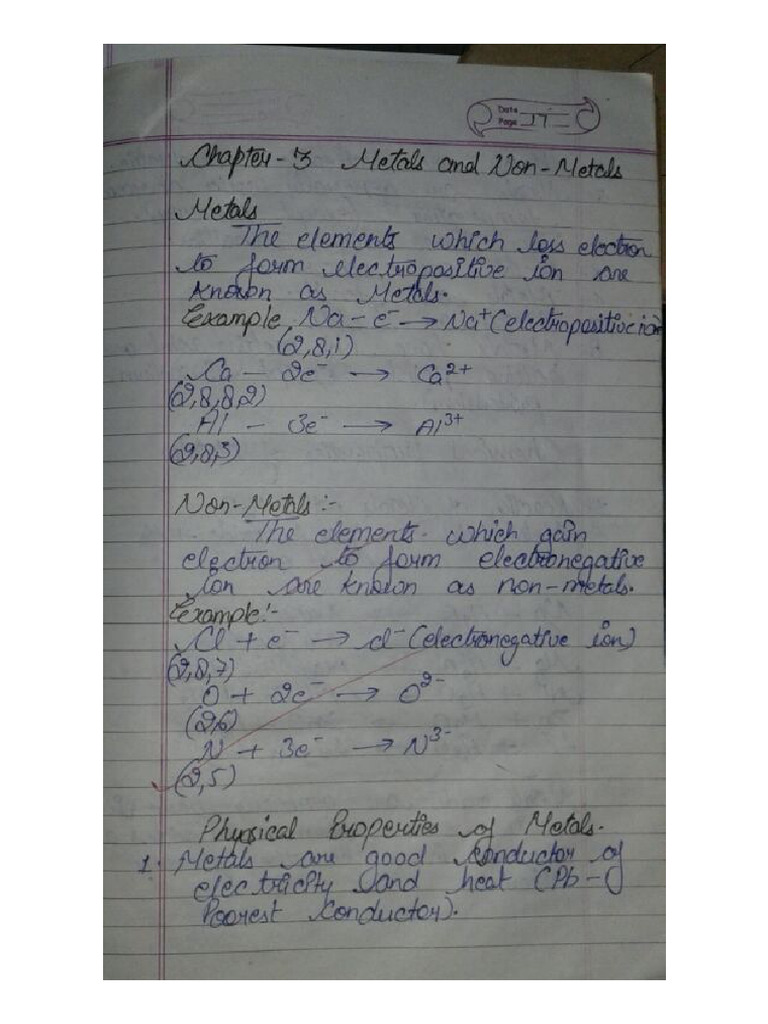 Date
Page 17
Chapter-3 Metals and Non-Metals
Metals
The elements which loss electron
to form electropositive ion are
known as Metals.
Example, Na - e⁻ → Na⁺ (electropositive ion
(2,8,1)
Ca - 2e⁻ → Ca²⁺
(2,8,8,2)
Al - 3e⁻ → Al³⁺
(2,8,3)
Non-Metals:-
The elements which gain
electron to form electronegative
ion are known as non-metals.
Example:-
Cl + e⁻ → Cl⁻ (electronegative ion)
(2,8,7)
O + 2e⁻ → O²⁻
(2,6)
N + 3e⁻ → N³⁻
(2,5)
Physical Properties of Metals.
1. Metals are good conductor of
electricity and heat (Pb-
Poorest Conductor).